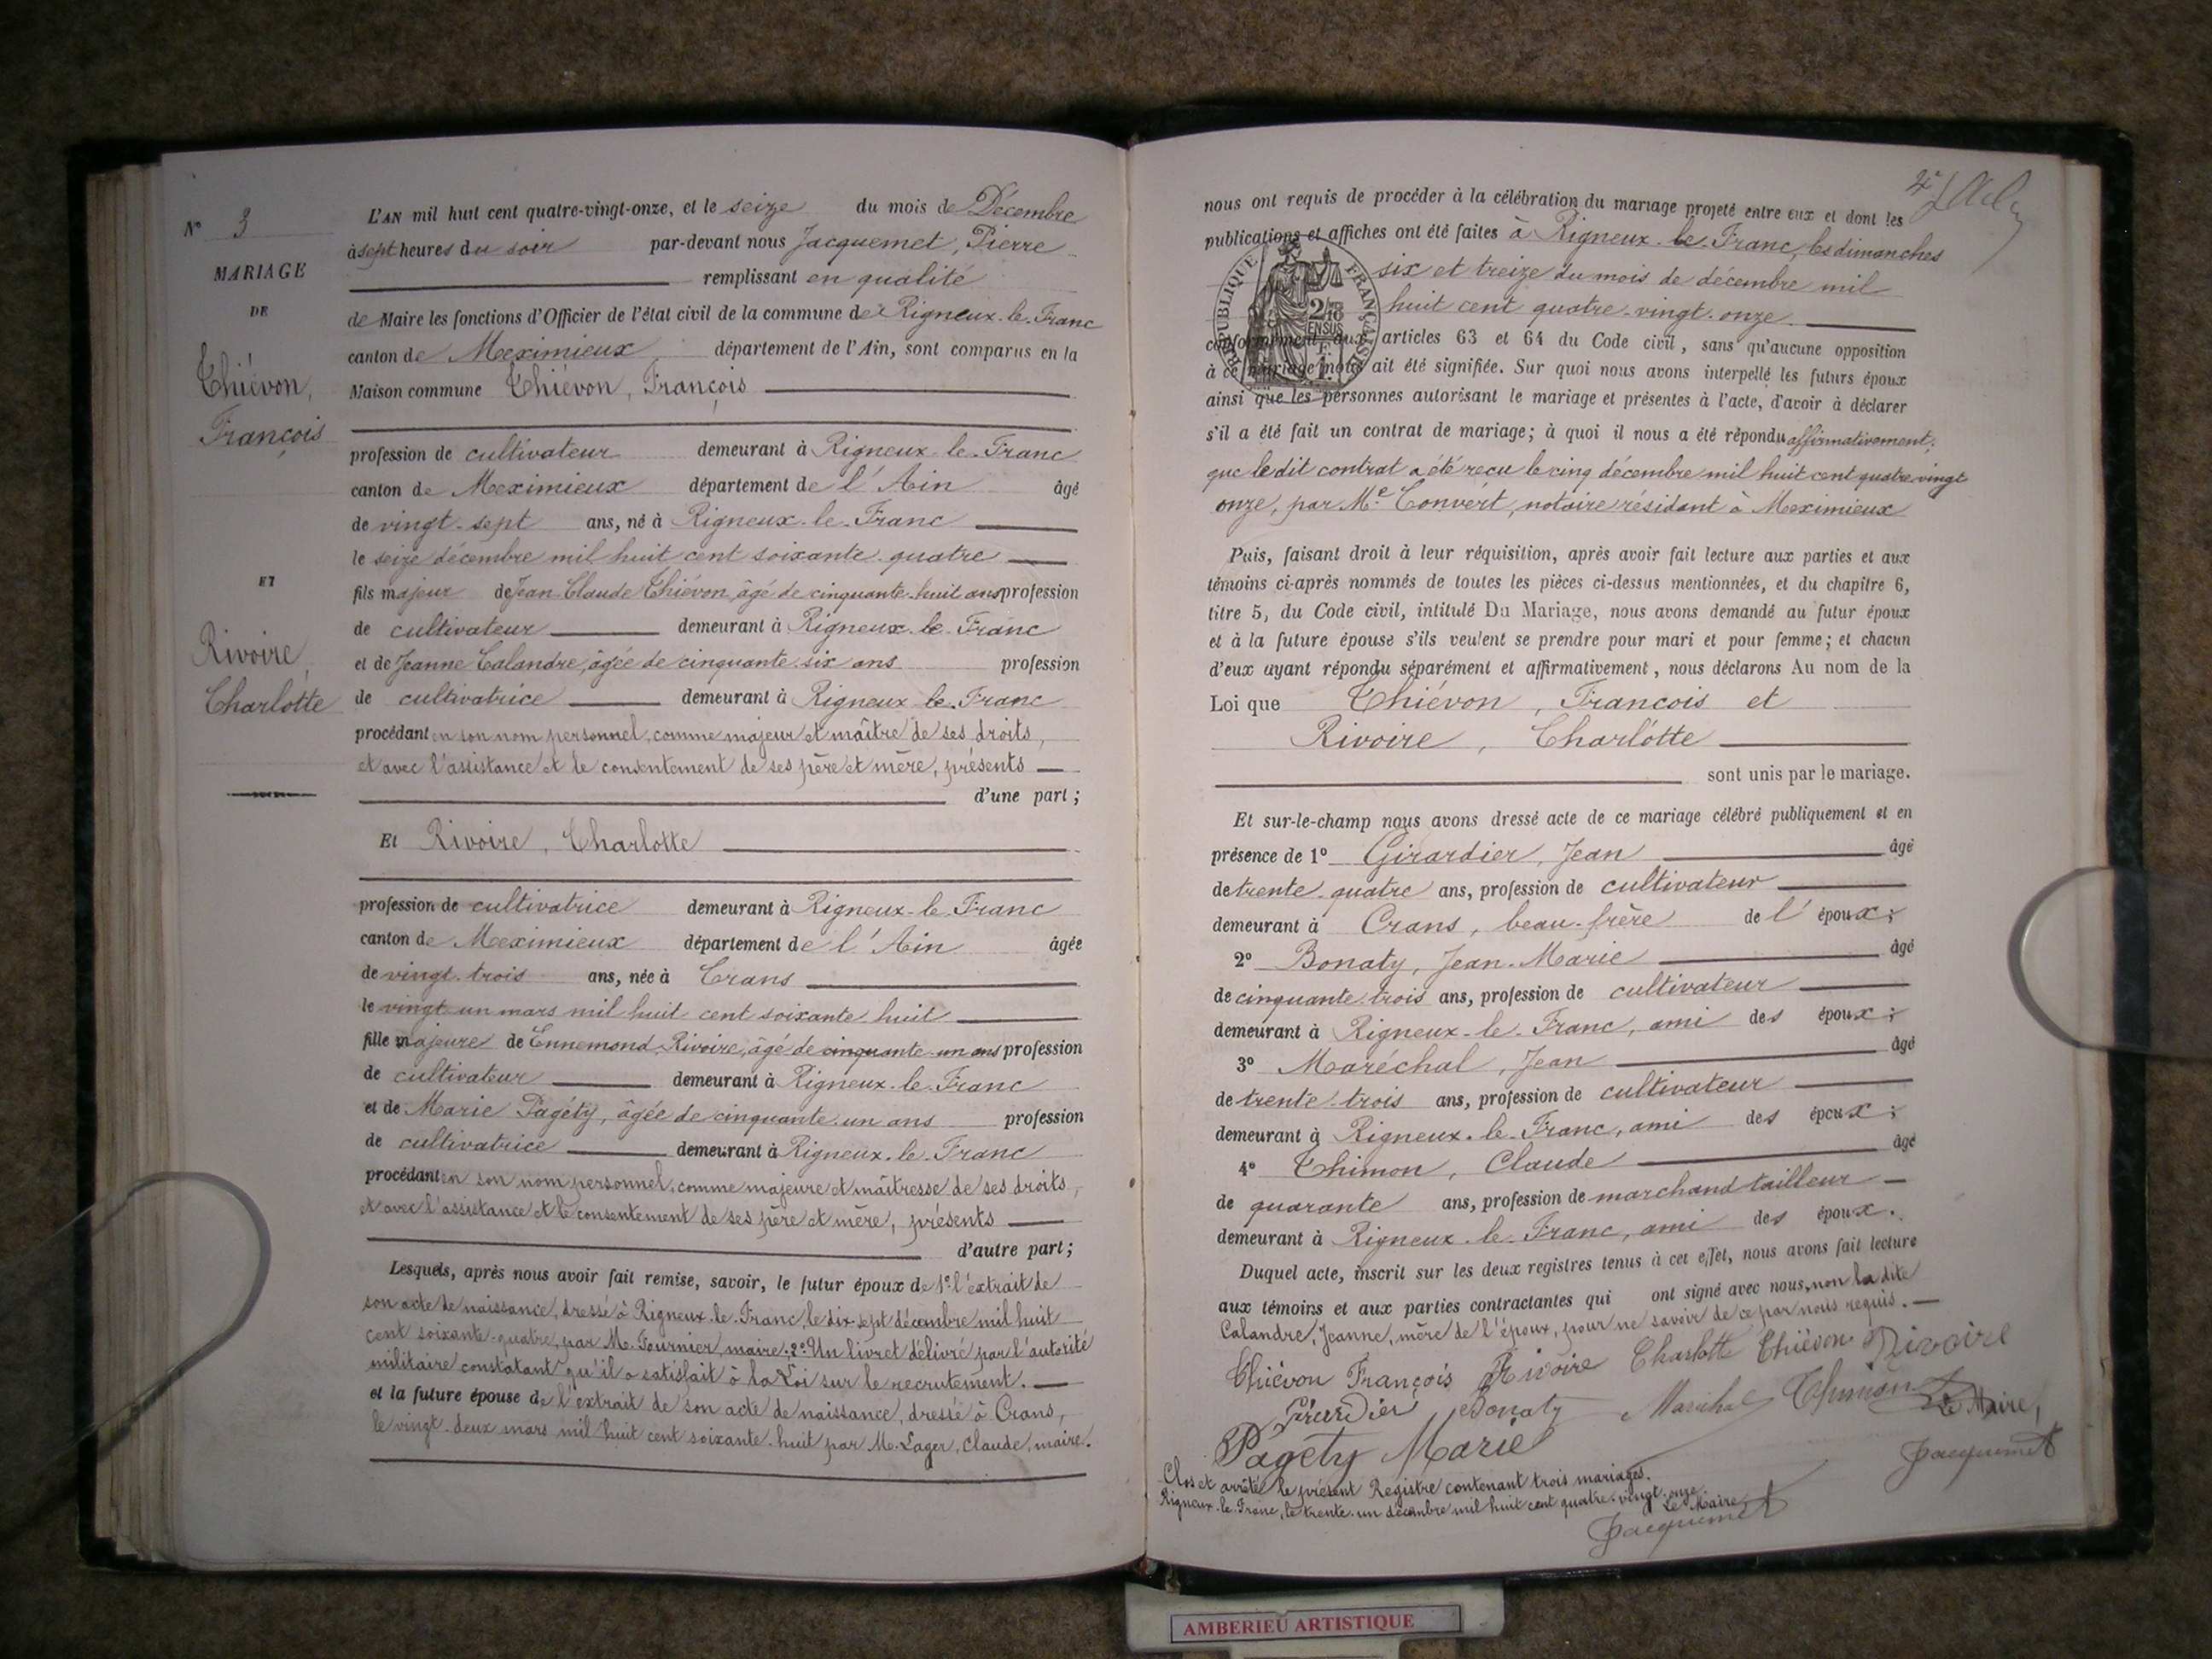 N° 3
MARIAGE
DE
Thiévon,
François
ET
Rivoire,
Charlotte
L'AN mil huit cent quatre-vingt-onze, et le seize du mois de Décembre
à sept heures du soir par-devant nous Jacquemet, Pierre
remplissant en qualité
de Maire les fonctions d'Officier de l'état civil de la commune de Rigneux-le-Franc
canton de Meximieux, département de l'Ain, sont comparus en la
Maison commune Thiévon, François
profession de cultivateur demeurant à Rigneux-le-Franc
canton de Meximieux département de l'Ain âgé
de vingt-sept ans, né à Rigneux-le-Franc
le seize décembre mil huit cent soixante-quatre
fils majeur de Jean-Claude Thiévon, âgé de cinquante-huit ans profession
de cultivateur demeurant à Rigneux-le-Franc
et de Jeanne Calandre, âgée de cinquante-six ans profession
de cultivatrice demeurant à Rigneux-le-Franc
procédant en son nom personnel, comme majeur et maître de ses droits,
et avec l'assistance et le consentement de ses père et mère, présents
d'une part;
Et Rivoire, Charlotte
profession de cultivatrice demeurant à Rigneux-le-Franc
canton de Meximieux département de l'Ain âgée
de vingt-trois ans, née à Crans
le vingt-un mars mil huit cent soixante-huit
fille majeure de Ennemond Rivoire, âgé de cinquante-un ans profession
de cultivateur demeurant à Rigneux-le-Franc
et de Marie Pagéty, âgée de cinquante-un ans profession
de cultivatrice demeurant à Rigneux-le-Franc
procédant en son nom personnel, comme majeure et maîtresse de ses droits,
et avec l'assistance et le consentement de ses père et mère, présents
d'autre part;
Lesquels, après nous avoir fait remise, savoir, le futur époux de 1° l'extrait de
son acte de naissance, dressé à Rigneux-le-Franc, le dix-sept décembre mil huit
cent soixante-quatre, par M. Fournier, maire; 2° Un livret délivré par l'autorité
militaire constatant qu'il a satisfait à la Loi sur le recrutement.
et la future épouse de l'extrait de son acte de naissance, dressé à Crans,
le vingt-deux mars mil huit cent soixante-huit par M. Lager, Claude, maire.
nous ont requis de procéder à la célébration du mariage projeté entre eux et dont les
publications et affiches ont été faites à Rigneux-le-Franc, les dimanches
six et treize du mois de décembre mil
huit cent quatre-vingt-onze
RÉPUBLIQUE FRANÇAISE
2/10
EN SUS
1 F.
conformément aux articles 63 et 64 du Code civil, sans qu'aucune opposition
à ce mariage nous ait été signifiée. Sur quoi nous avons interpellé les futurs époux
ainsi que les personnes autorisant le mariage et présentes à l'acte, d'avoir à déclarer
s'il a été fait un contrat de mariage; à quoi il nous a été répondu affirmativement;
que le dit contrat a été reçu le cinq décembre mil huit cent quatre-vingt
onze, par Me Convert, notaire résidant à Meximieux
Puis, faisant droit à leur réquisition, après avoir fait lecture aux parties et aux
témoins ci-après nommés de toutes les pièces ci-dessus mentionnées, et du chapitre 6,
titre 5, du Code civil, intitulé Du Mariage, nous avons demandé au futur époux
et à la future épouse s'ils veulent se prendre pour mari et pour femme; et chacun
d'eux ayant répondu séparément et affirmativement, nous déclarons Au nom de la
Loi que Thiévon, François et
Rivoire, Charlotte
sont unis par le mariage.
Et sur-le-champ nous avons dressé acte de ce mariage célébré publiquement et en
présence de 1° Girardier, Jean âgé
de trente-quatre ans, profession de cultivateur
demeurant à Crans, beau-frère de l'époux;
2° Bonaty, Jean-Marie âgé
de cinquante-trois ans, profession de cultivateur
demeurant à Rigneux-le-Franc, ami des époux;
3° Maréchal, Jean âgé
de trente-trois ans, profession de cultivateur
demeurant à Rigneux-le-Franc, ami des époux;
4° Thimon, Claude âgé
de quarante ans, profession de marchand tailleur
demeurant à Rigneux-le-Franc, ami des époux.
Duquel acte, inscrit sur les deux registres tenus à cet effet, nous avons fait lecture
aux témoins et aux parties contractantes qui ont signé avec nous, non la dite
Calandre, Jeanne, mère de l'époux, pour ne savoir de ce par nous requis.
Thiévon François Rivoire Charlotte Thiévon Rivoire
Girardier Bonaty Maréchal Thimon Le Maire,
Pagéty Marie Jacquemet
Clos et arrêté le présent Registre contenant trois mariages.
Rigneux-le-Franc, le trente-un décembre mil huit cent quatre-vingt-onze
Le Maire,
Jacquemet
AMBERIEU ARTISTIQUE